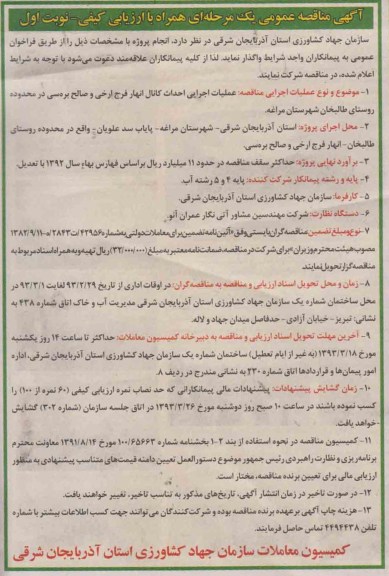 آگهی مناقصه عمومی یک مرحله‌ای همراه با ارزیابی کیفی- نوبت اول
سازمان جهاد کشاورزی استان آذربایجان شرقی در نظر دارد، انجام پروژه با مشخصات ذیل را از طریق فراخوان
عمومی به پیمانکاران واجد شرایط واگذار نماید. لذا از کلیه پیمانکاران علاقه‌مند دعوت می‌شود با توجه به شرایط
اعلام شده، در مناقصه شرکت نمایند.
۱- موضوع و نوع عملیات اجرایی مناقصه: عملیات اجرایی احداث کانال انهار فرج ارخی و صالح بره‌سی در محدوده
روستای طالبخان شهرستان مراغه.
۲- محل اجرای پروژه: استان آذربایجان شرقی- شهرستان مراغه- پایاب سد علویان- واقع در محدوده روستای
طالبخان- انهار فرج ارخی و صالح بره‌سی.
۳- برآورد نهایی پروژه: حداکثر سقف مناقصه در حدود ۱۱ میلیارد ریال براساس فهارس بهاء سال ۱۳۹۲ با تعدیل.
۴- پایه و رشته پیمانکار شرکت کننده: پایه ۴ و ۵ رشته آب.
۵- کارفرما: سازمان جهاد کشاورزی استان آذربایجان شرقی.
۶- دستگاه نظارت: شرکت مهندسین مشاور آتی نگار عمران آنو.
۷- نوع و مبلغ تضمین: مناقصه‌گران بایستی وفق «آئین‌نامه تضمین برای معاملات دولتی به شماره ۴۲۹۵۶/ت۲۸۴۳ه-۱۳۸۲/۹/۱۱
مصوب هیئت محترم وزیران» برای شرکت در مناقصه، ضمانت‌نامه معتبر به مبلغ (۳۲۰/۰۰۰/۰۰۰) ریال تهیه و به همراه اسناد مربوط به
مناقصه‌گزار تحویل نمایند.
۸- زمان و محل تحویل اسناد ارزیابی و مناقصه به مناقصه‌گران: در اوقات اداری از تاریخ ۹۳/۲/۲۹ لغایت ۹۳/۳/۱ در
محل ساختمان شماره یک سازمان جهاد کشاورزی استان آذربایجان شرقی مدیریت آب و خاک اتاق شماره ۴۳۸ به
نشانی: تبریز- خیابان آزادی- حدفاصل میدان جهاد و لاله.
۹- آخرین مهلت تحویل اسناد ارزیابی و مناقصه به دبیرخانه کمیسیون معاملات: حداکثر تا ساعت ۱۴ روز یکشنبه
مورخ ۱۳۹۳/۳/۱۸ (به غیر از ایام تعطیل) ساختمان شماره یک سازمان جهاد کشاورزی استان آذربایجان شرقی، اداره
امور پیمان‌ها و قراردادها اتاق شماره ۲۳۰ به نشانی مندرج در ردیف ۸.
۱۰- زمان گشایش پیشنهادات: پیشنهادات مالی پیمانکارانی که حد نصاب نمره ارزیابی کیفی (۶۰ نمره از ۱۰۰) را
کسب نموده باشند در ساعت ۱۰ صبح روز دوشنبه مورخ ۱۳۹۳/۳/۲۶ در اتاق جلسه سازمان (شماره ۳۰۲) گشایش
خواهد یافت.
۱۱- کمیسیون مناقصه در نحوه استفاده از بند ۲-۱۰ بخشنامه شماره ۱۰۰/۶۵۶۶۳ مورخ ۱۳۹۱/۸/۱۴ معاونت محترم
برنامه‌ریزی و نظارت راهبردی رئیس جمهور موضوع دستورالعمل تعیین دامنه قیمت‌های متناسب پیشنهادی به منظور
ارزیابی مالی برای تعیین برنده مناقصه، مختار است.
۱۲- در صورت تاخیر در زمان انتشار آگهی، تاریخ‌های مذکور به تناسب تاخیر، تغییر خواهند یافت.
۱۳- هزینه چاپ آگهی برعهده برنده مناقصه بوده و شرکت‌کنندگان می‌توانند جهت کسب اطلاعات بیشتر با شماره
تلفن ۴۴۹۴۴۳۸ تماس حاصل فرمایند.
کمیسیون معاملات سازمان جهاد کشاورزی استان آذربایجان شرقی